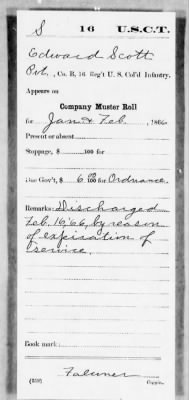 S 16 U.S.C.T.
Edward Scott
Pvt., Co. B, 16 Reg't U. S. Col'd Infantry.
Appears on
Company Muster Roll
for Jan & Feb, 1866.
Present or absent
Stoppage, $ 100 for
Due Gov't, $ 6 00/100 for Ordnance
Remarks: Discharged
Feb. 16, 66, by reason
of expiration of
service.
Book mark:
(359) Copyist.